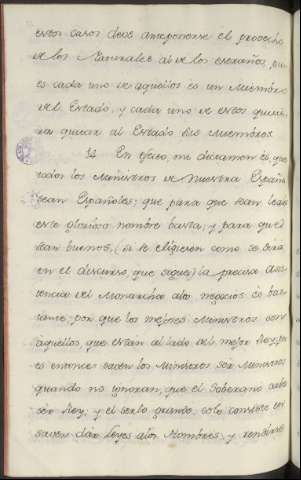 estos casos deve anteponerse el provecho
de los Naturales al de los estraños, pu-
es cada uno de aquellos es un Miembro
del Estado, y cada uno de estos quisie-
ra quitar al Estado sus Miembros.
14 En efecto, mi dictamen es, que
todos los Ministros de Nuestra España
sean Españoles; que para que sean leales
este glorioso nombre basta; y para que
sean buenos, (si se eligieren como se dirá
en el discurso, que sigue) la precisa asis-
tencia del Monarcha alos negocios es bas-
tante; por que los mejores Ministros son
aquellos, que estan al lado del mejor Rey, pu-
es entonces saven los Ministros ser Ministros
quando no ignoran, que el Soberano sabe
ser Rey; y el serlo grande, solo consiste en
saver dar leyes alos Hombres, y rendirse